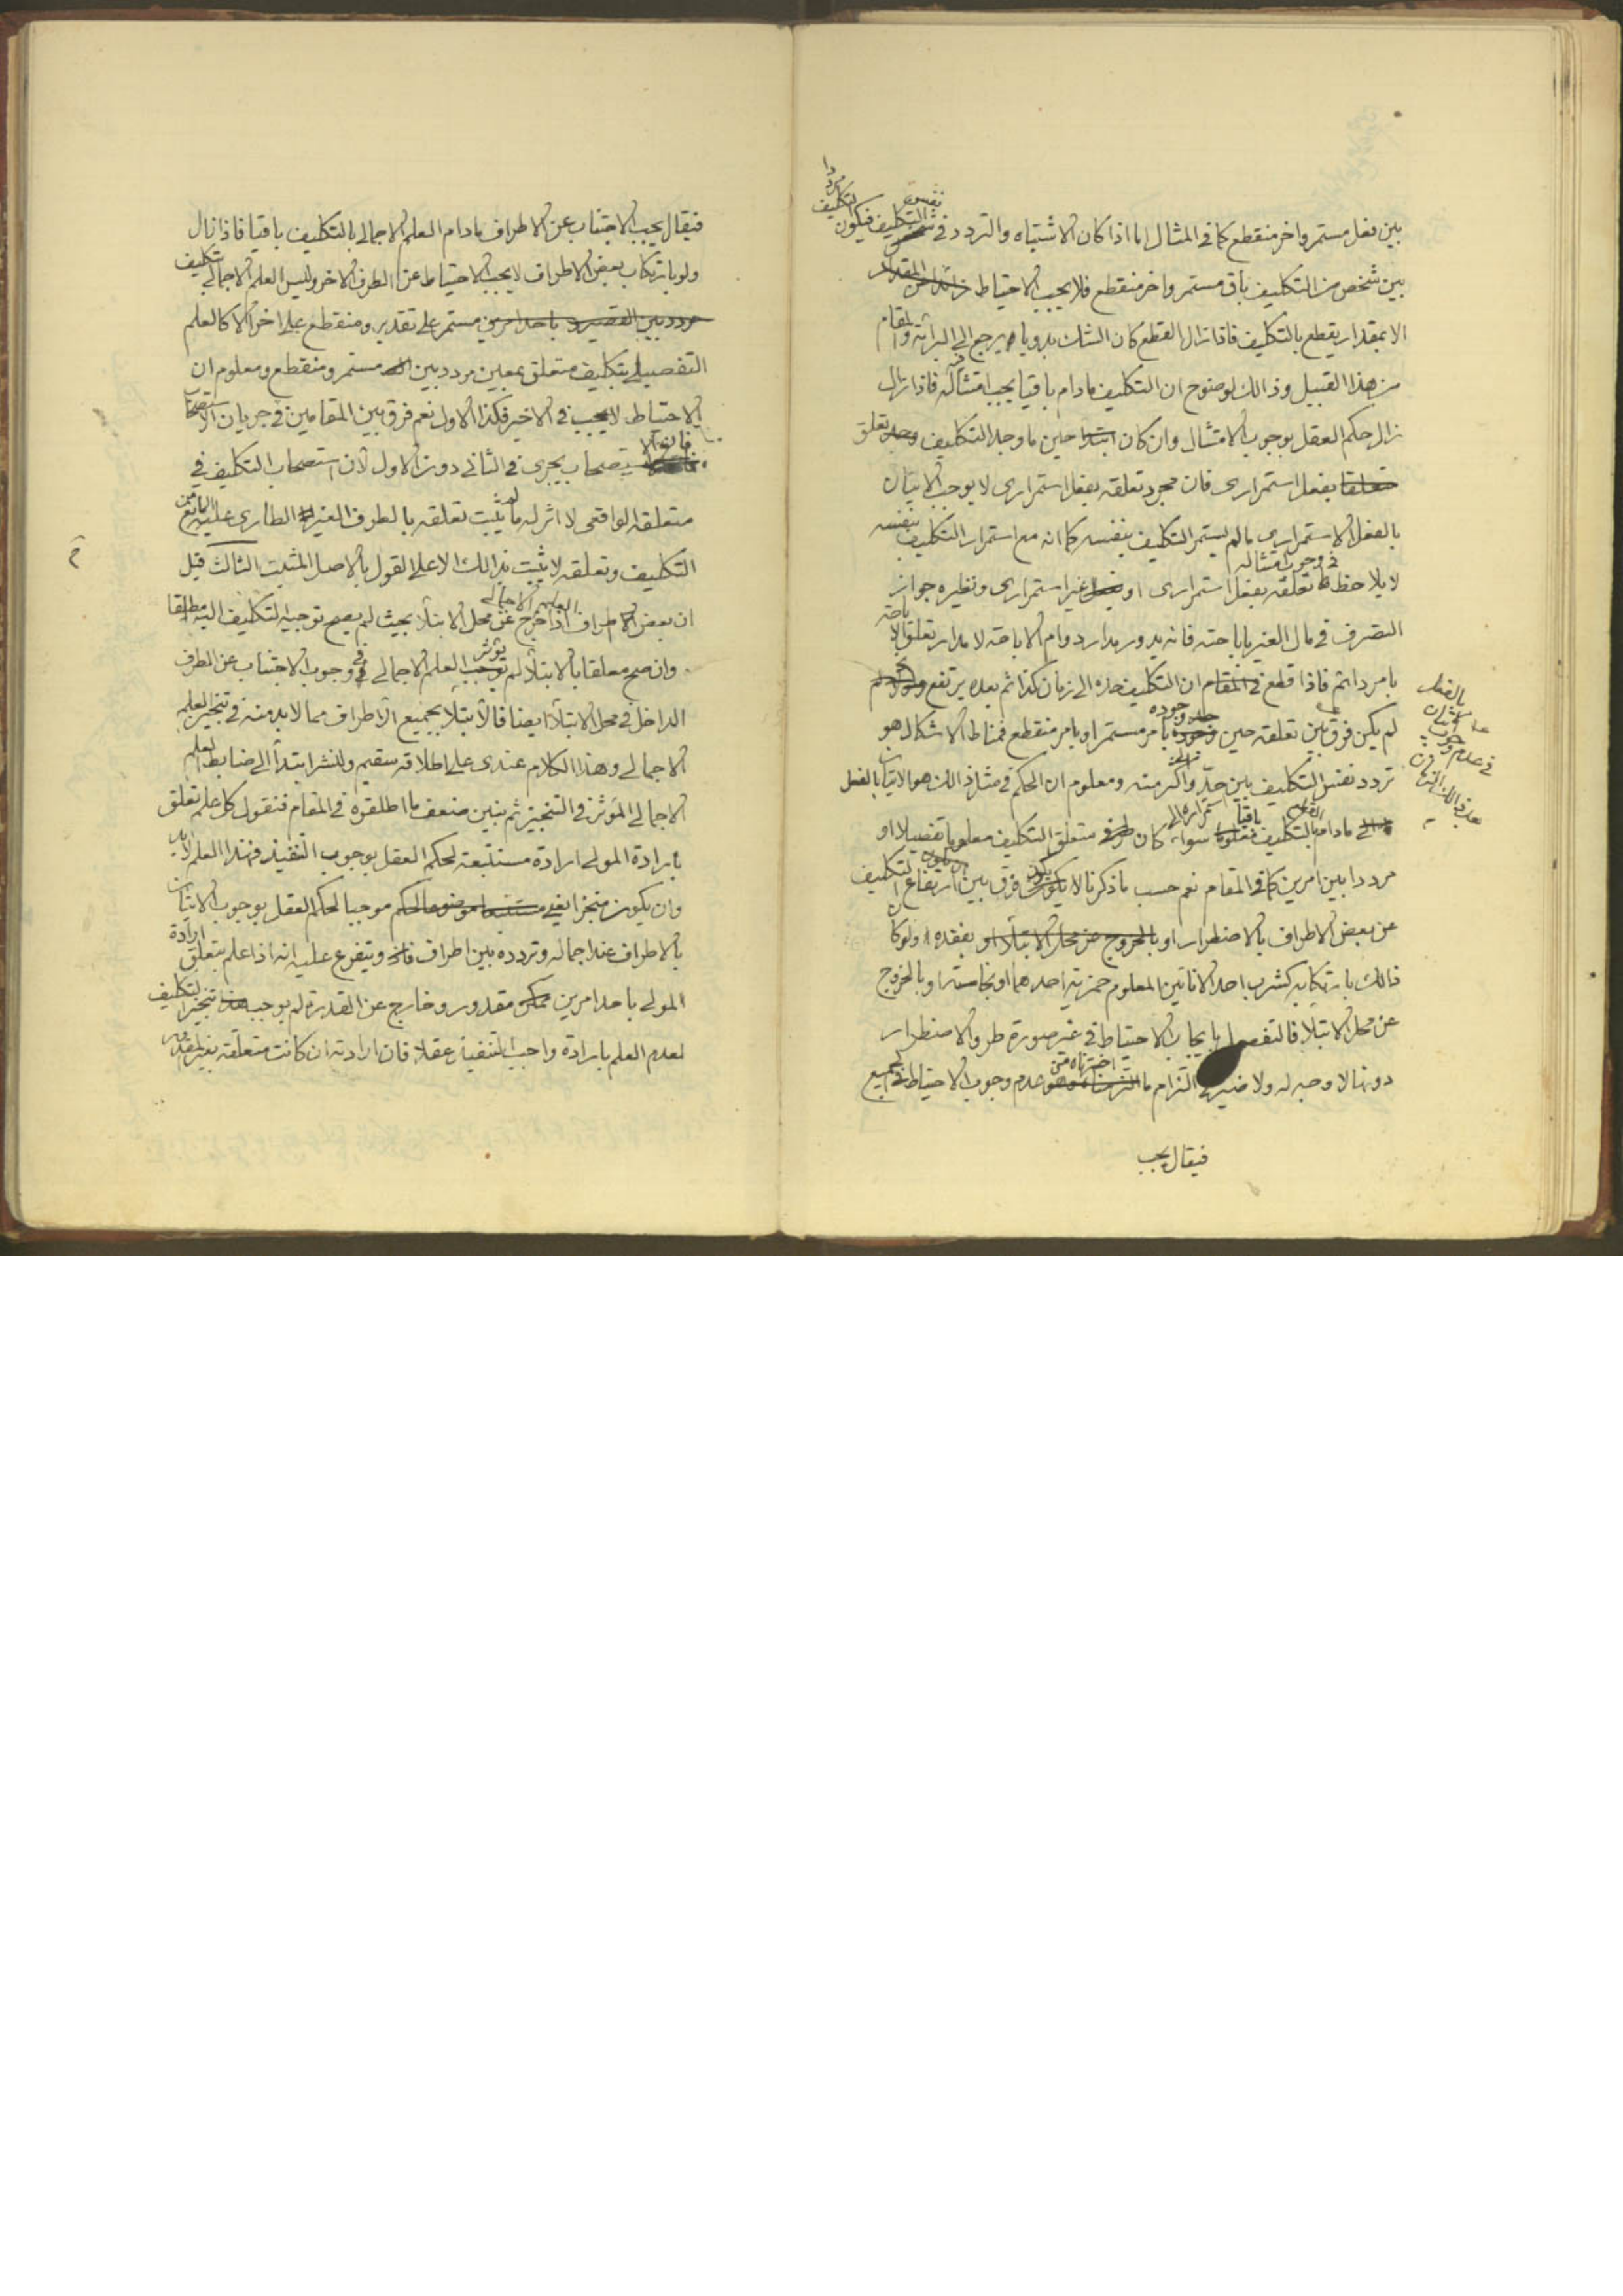 بين فعل مستمر واخر منقطع كما في المثال اما اذا كان الاشتباه والتردد في نفس التكليف فيكون التكليف مرددا
بين شخص من التكليف باق مستمر واخر منقطع فلا يجب الاحتياط
الا بمقدار يقطع بالتكليف فاذا زال القطع كان الشك بدويا يرجع الى البرائة والمقام
من هذا القبيل وذالك لوضوح ان التكليف مادام باقيا يجب امتثاله فاذا زال
زال حكم العقل بوجوب الامتثال وان كان ابتدا حين ما وجد التكليف وجد تعلق
متعلقا بفعل استمراري فان مجرد تعلقه بفعل استمراري لا يوجب الاتيان
بالفعل الاستمراري مالم يستمر التكليف بنفسه كما انه مع استمرار التكليف بنفسه
لا يلاحظ في وجوب امتثاله تعلقه بفعل استمراري او غير استمراري ونظيره جواز
التصرف في مال الغير باباحته فانه يدور مدار دوام الاباحة لا مدار تعلق الاباحة
بامر دائم فاذا قطع في المقام ان التكليف حده الى زمان كذا ثم بعده يرتفع
لم يكن فرق بين تعلقه حين وجوده بامر مستمر او بامر منقطع فمناط الاشكال هو
تردد نفس التكليف بين حدّ واكثر منه ومعلوم ان الحكم في مثل ذالك هو الاتيان بالفعل
مادام التكليف باقيا سواء كان متعلق التكليف معلوما تفصيلا او
مرددا بين امرين كما في المقام نعم حسب ما ذكرنا لا يكون فرق بين ارتفاع التكليف
عن بعض الاطراف بالاضطرار او بالخروج عن محل الابتلاء او بفقده ولو كان
ذالك بارتكابه كشرب احد الانائين المعلوم خمرية احدهما او نجاسته او بالخروج
عن محل الابتلاء فالتفصيل بايجاب الاحتياط في غير صورة طرو الاضطرار
دونها لا وجه له ولا ضير في التزام ما اخترناه من عدم وجوب الاحتياط في الجميع
فيقال يجب
فيقال يجب الاجتناب عن الاطراف مادام العلم الاجمالي بالتكليف باقيا فاذا زال
ولو بارتكاب بعض الاطراف لا يجب الاحتياط عن الطرف الاخر وليس العلم الاجمالي بتكليف
مردد بين القصير باحد امرين مستمر على تقدير ومنقطع على اخر الا كالعلم
التفصيلي بتكليف متعلق بمعين مردد بين مستمر ومنقطع ومعلوم ان
الاحتياط لا يجب في الاخير فكذا الاول نعم فرق بين المقامين في جريان الاستصحاب
فان الاستصحاب يجري في الثاني دون الاول لان استصحاب التكليف في
متعلقه الواقعي لا اثر له ما لم يثبت تعلقه بالطرف الغير الطاري عليه المانع من
التكليف وتعلقه لا يثبت بذالك الا على القول بالاصل المثبت الثالث قيل
ان بعض الاطراف اذا خرج عن محل الابتلاء بحيث لم يصح توجيه التكليف اليه مطلقا
وان صح معلقا بالابتلاء لم يؤثر العلم الاجمالي في وجوب الاجتناب عن الطرف
الداخل في محل الابتلاء ايضا فالابتلاء بجميع الاطراف مما لابد منه في تنجيز العلم
الاجمالي وهذا الكلام عندي على اطلاقه سقيم ولنشر ابتداء الى ضابط العلم
الاجمالي المؤثر في التنجيز ثم نبين ضعف ما اطلقوه في المقام فنقول كل علم تعلق
بارادة المولى ارادة مستتبعة لحكم العقل بوجوب التنفيذ فهذا العلم لابد
وان يكون منجزا يعني مستتبعا موضوعا لحكم موجبا لحكم العقل بوجوب الاتيان
بالاطراف عند اجماله وتردده بين اطراف ويتفرع عليه انه اذا علم بتعلق ارادة
المولى باحد امرين ممكن مقدور وخارج عن القدرة لم يوجب هذا تنجيز التكليف
لعدم العلم بارادة واجب التنفيذ عقلا فان ارادته ان كانت متعلقة بغير المقدور